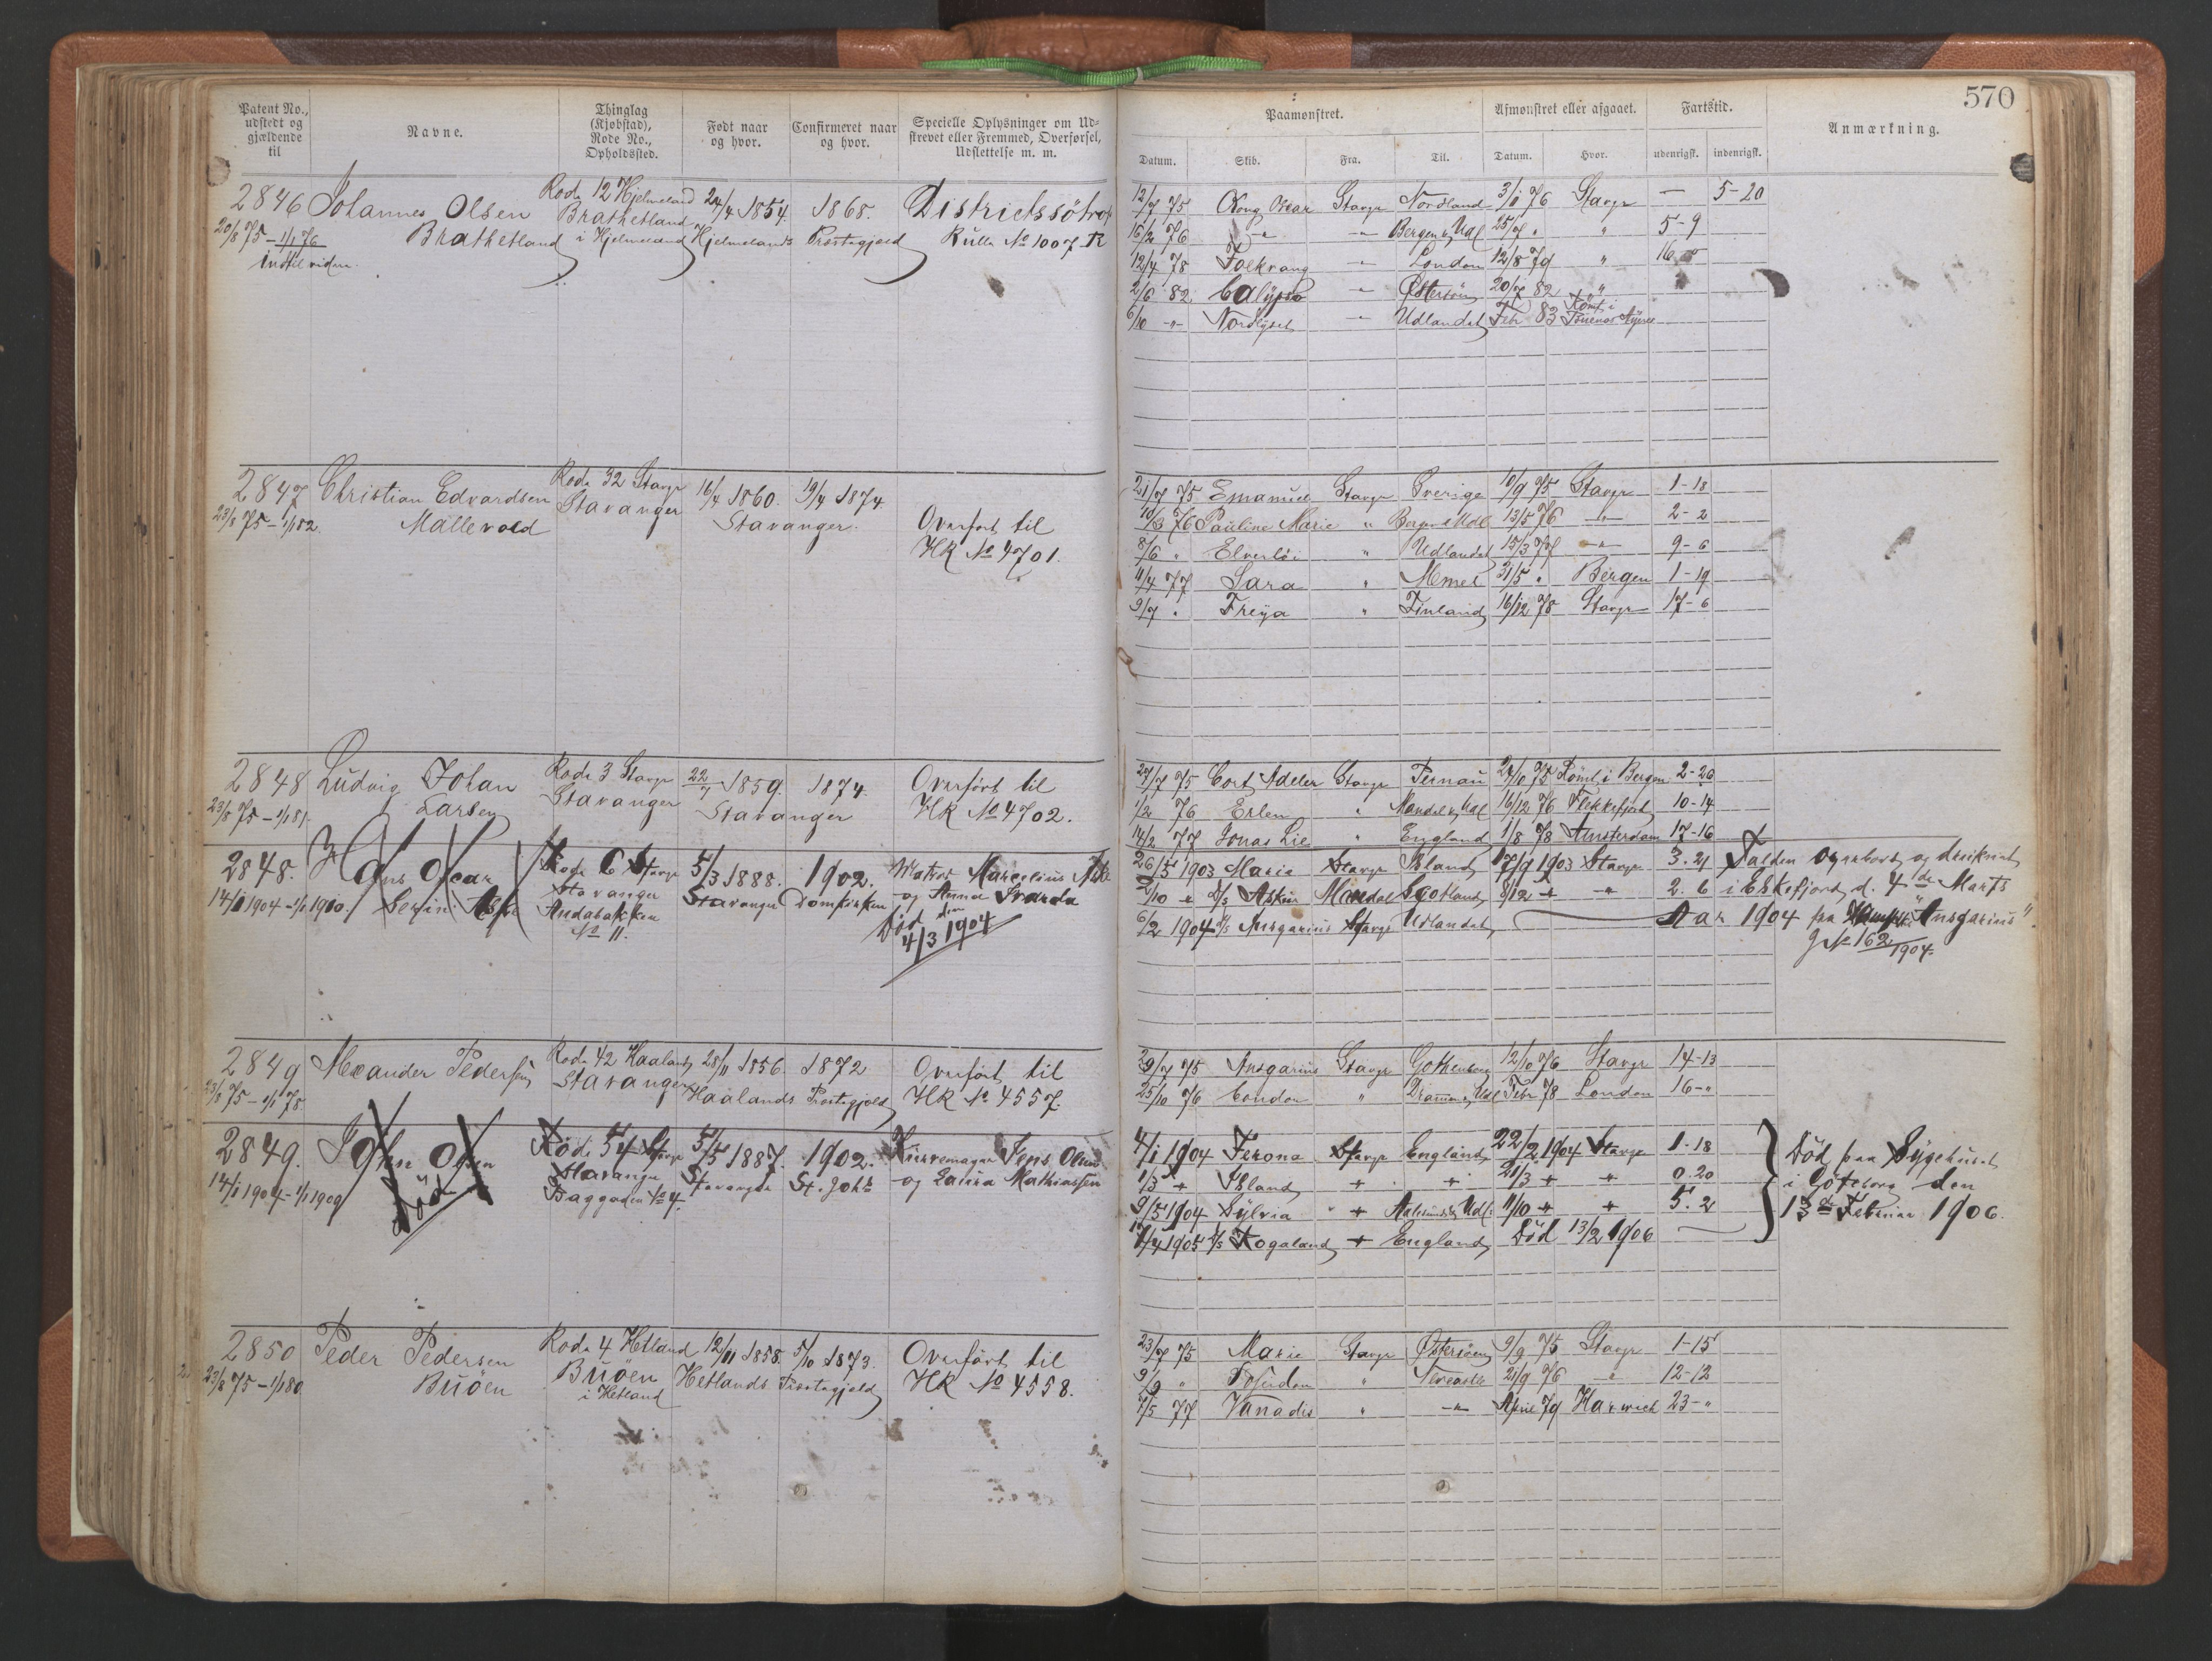 Patent No., udstedt og gjældende til
Navne.
Thinglag (Kjøbstad), Rode No., Opholdssted.
Født naar og hvor.
Confirmeret naar og hvor.
Specielle Oplysninger om Udstrevet eller Fremmed, Overførsel, Udslettelse m. m.
Paamønstret.
Afmønstret eller afgaaet.
Fartstid.
Anmærkning.
570
Datum. Skib. Fra. Til. Datum. Hvor. udenrigsk. indenrigsk.
2846 Johannes Olsen Rode 12 Hjelmeland 24/4 1854. 1868. Districtssötro
20/8 75 – 1/1 76 Brathetland Brathetland i Hjelmeland Hjelmelands Prestegjeld Rulle No 1007 R
Indtil videre.
12/7 75 Kong Oscar Stavgr Nordland 3/1 76 Stavgr — 5-20
15/2 76 " " Bergen & Udl 25/7 " " 5-9
12/4 78 Folkvang " London 12/8 79 " 16
2/6 82 Calypso " Östersöen 20/7 82 "
6/10 " Nordlyset " Udlandet Febr 83 Römt i Buenos Ayres
2847 Christian Edvardsen Rode 32 Stavgr 16/4 1860. 19/4 1874.
23/8 75 – 1/1 82. Mallevold Stavanger Stavanger. Overfört til
HR No 4701.
21/7 75 Emanuel Stavgr Sverige 10/9 75 Stavgr 1-18
10/3 76 Pauline Marie " Bergen & Udl 13/5 76 " 2-2
8/6 " Elverhöi " Udlandet 15/3 77 " 9-6
11/4 77 Sara " Memel 31/5 " Bergen 1-19
9/7 " Freya " Finland 16/12 78 Stavgr 17-6
2848 Ludvig Johan Rode 3 Stavgr 22/7 1859. 1874. Overfört til
23/8 75 – 1/1 81. Larsen Stavanger Stavanger HR No 4702.
27/7 75 Cort Adeler Stavgr Pernau 24/10 75 Römt i Bergen 2-26
1/2 76 Erlen " Mandal & Udl 16/12 76 Flekkefjord 10-14
14/2 77 Jonas Lie " England 1/8 78 Amsterdam 17-16
2848. Hans Oscar Rode 6 Stavgr 5/3 1888. 1902. Matros Marcelius
14/1 1904 – 1/1 1910. Severin Stavanger Stavanger Domkirken og Anna
Andabakken No 11. Död den 4/3 1904
26/5 1903 Maria Stavgr Island 17/9 1903 Stavgr 3.21 Falden overbord og druknet
2/10 " D/s Askur Mandal Scotland 8/12 " " 2.6 i Eskefjord d. 4de Marts
6/2 1904 D/s Ansgarius Stavgr Udlandet Aar 1904 fra "Ansgarius".
J No 162/1904.
2849 Alexander Pedersen Rode 42 Haaland 28/11 1856. 1872 Overfört til
23/8 75 – 1/1 78 Stavanger Haalands Prestegjeld HR No 4557.
29/7 75 Ansgarius Stavgr Gothenborg 12/10 76 Stavgr 14-13
25/10 76 Condor " Drammen, Udl Febr 78 London 16-"
2849. John Olsen Rode 54 Stavgr 5/5 1887. 1902. Kurvemager Jens Olsen
14/1 1904 – 1/1 1909 Död Stavanger Stavanger St. Johs og Laura Mathiassen
Baggaden No 4.
4/1 1904 Verona Stavgr England 22/2 1904 Stavgr 1-18 Död paa Sygehuset
1/3 " Island " " 21/3 " " 0.20 i Göteborg den
9/5 1904 Sylvia " Aalesund & Udl. 11/10 " " 5.2 13de Februar 1906.
17/4 1905 D/s Rogaland " England Död 13/2 1906
2850 Peder Pedersen Rode 4 Hetland 12/11 1858. 5/10 1873. Overfört til
23/8 75 – 1/1 80 Buöen Buöen i Hetland Hetlands Prestegjeld HR No 4558.
23/7 75 Marie Stavgr Östersöen 9/9 75 Stavgr 1-15
9/9 " Poseidon " Newcastle 21/9 76 " 12-12
7/5 77 Vanadis " " April 79 Harwich 23-"